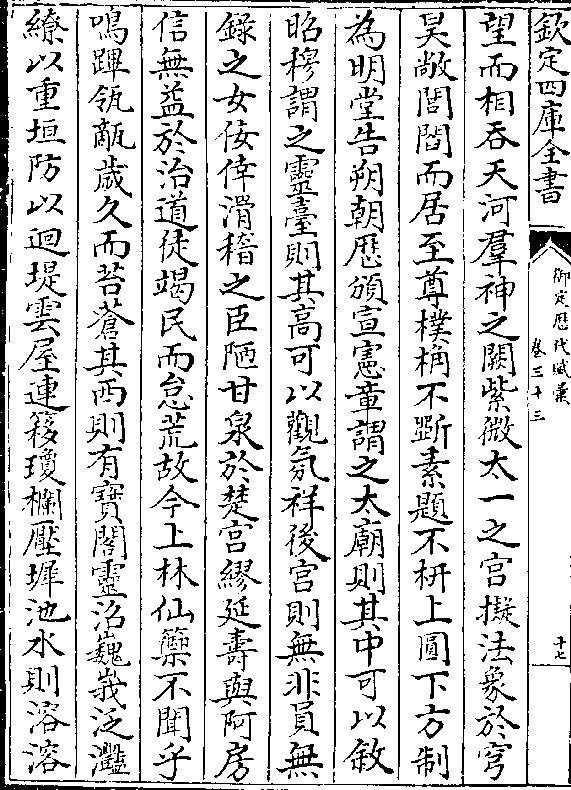 欽定四庫全書
御定歷代賦彙
卷三十三
十七
望而相吞天河羣神之闕紫微太一之宫擬法象於穹
昊敞閶閻而居至尊樸桷不斵素題不枅上圓下方制
為明堂告朔朝厯頒宣憲章謂之太廟則其中可以敘
昭穆謂之靈臺則其高可以觀氛祥後宫則無非員無
錄之女佞倖滑稽之臣陋甘泉於楚宫繆延壽與阿房
信無益於治道徒竭民而怠荒故今上林仙籞不聞乎
鳴蹕瓴甋歲久而苔蒼其西則有寶閣靈沼巍峩泛灩
繚以重垣防以迴堤雲屋連簃瓊欄壓墀池水則溶溶